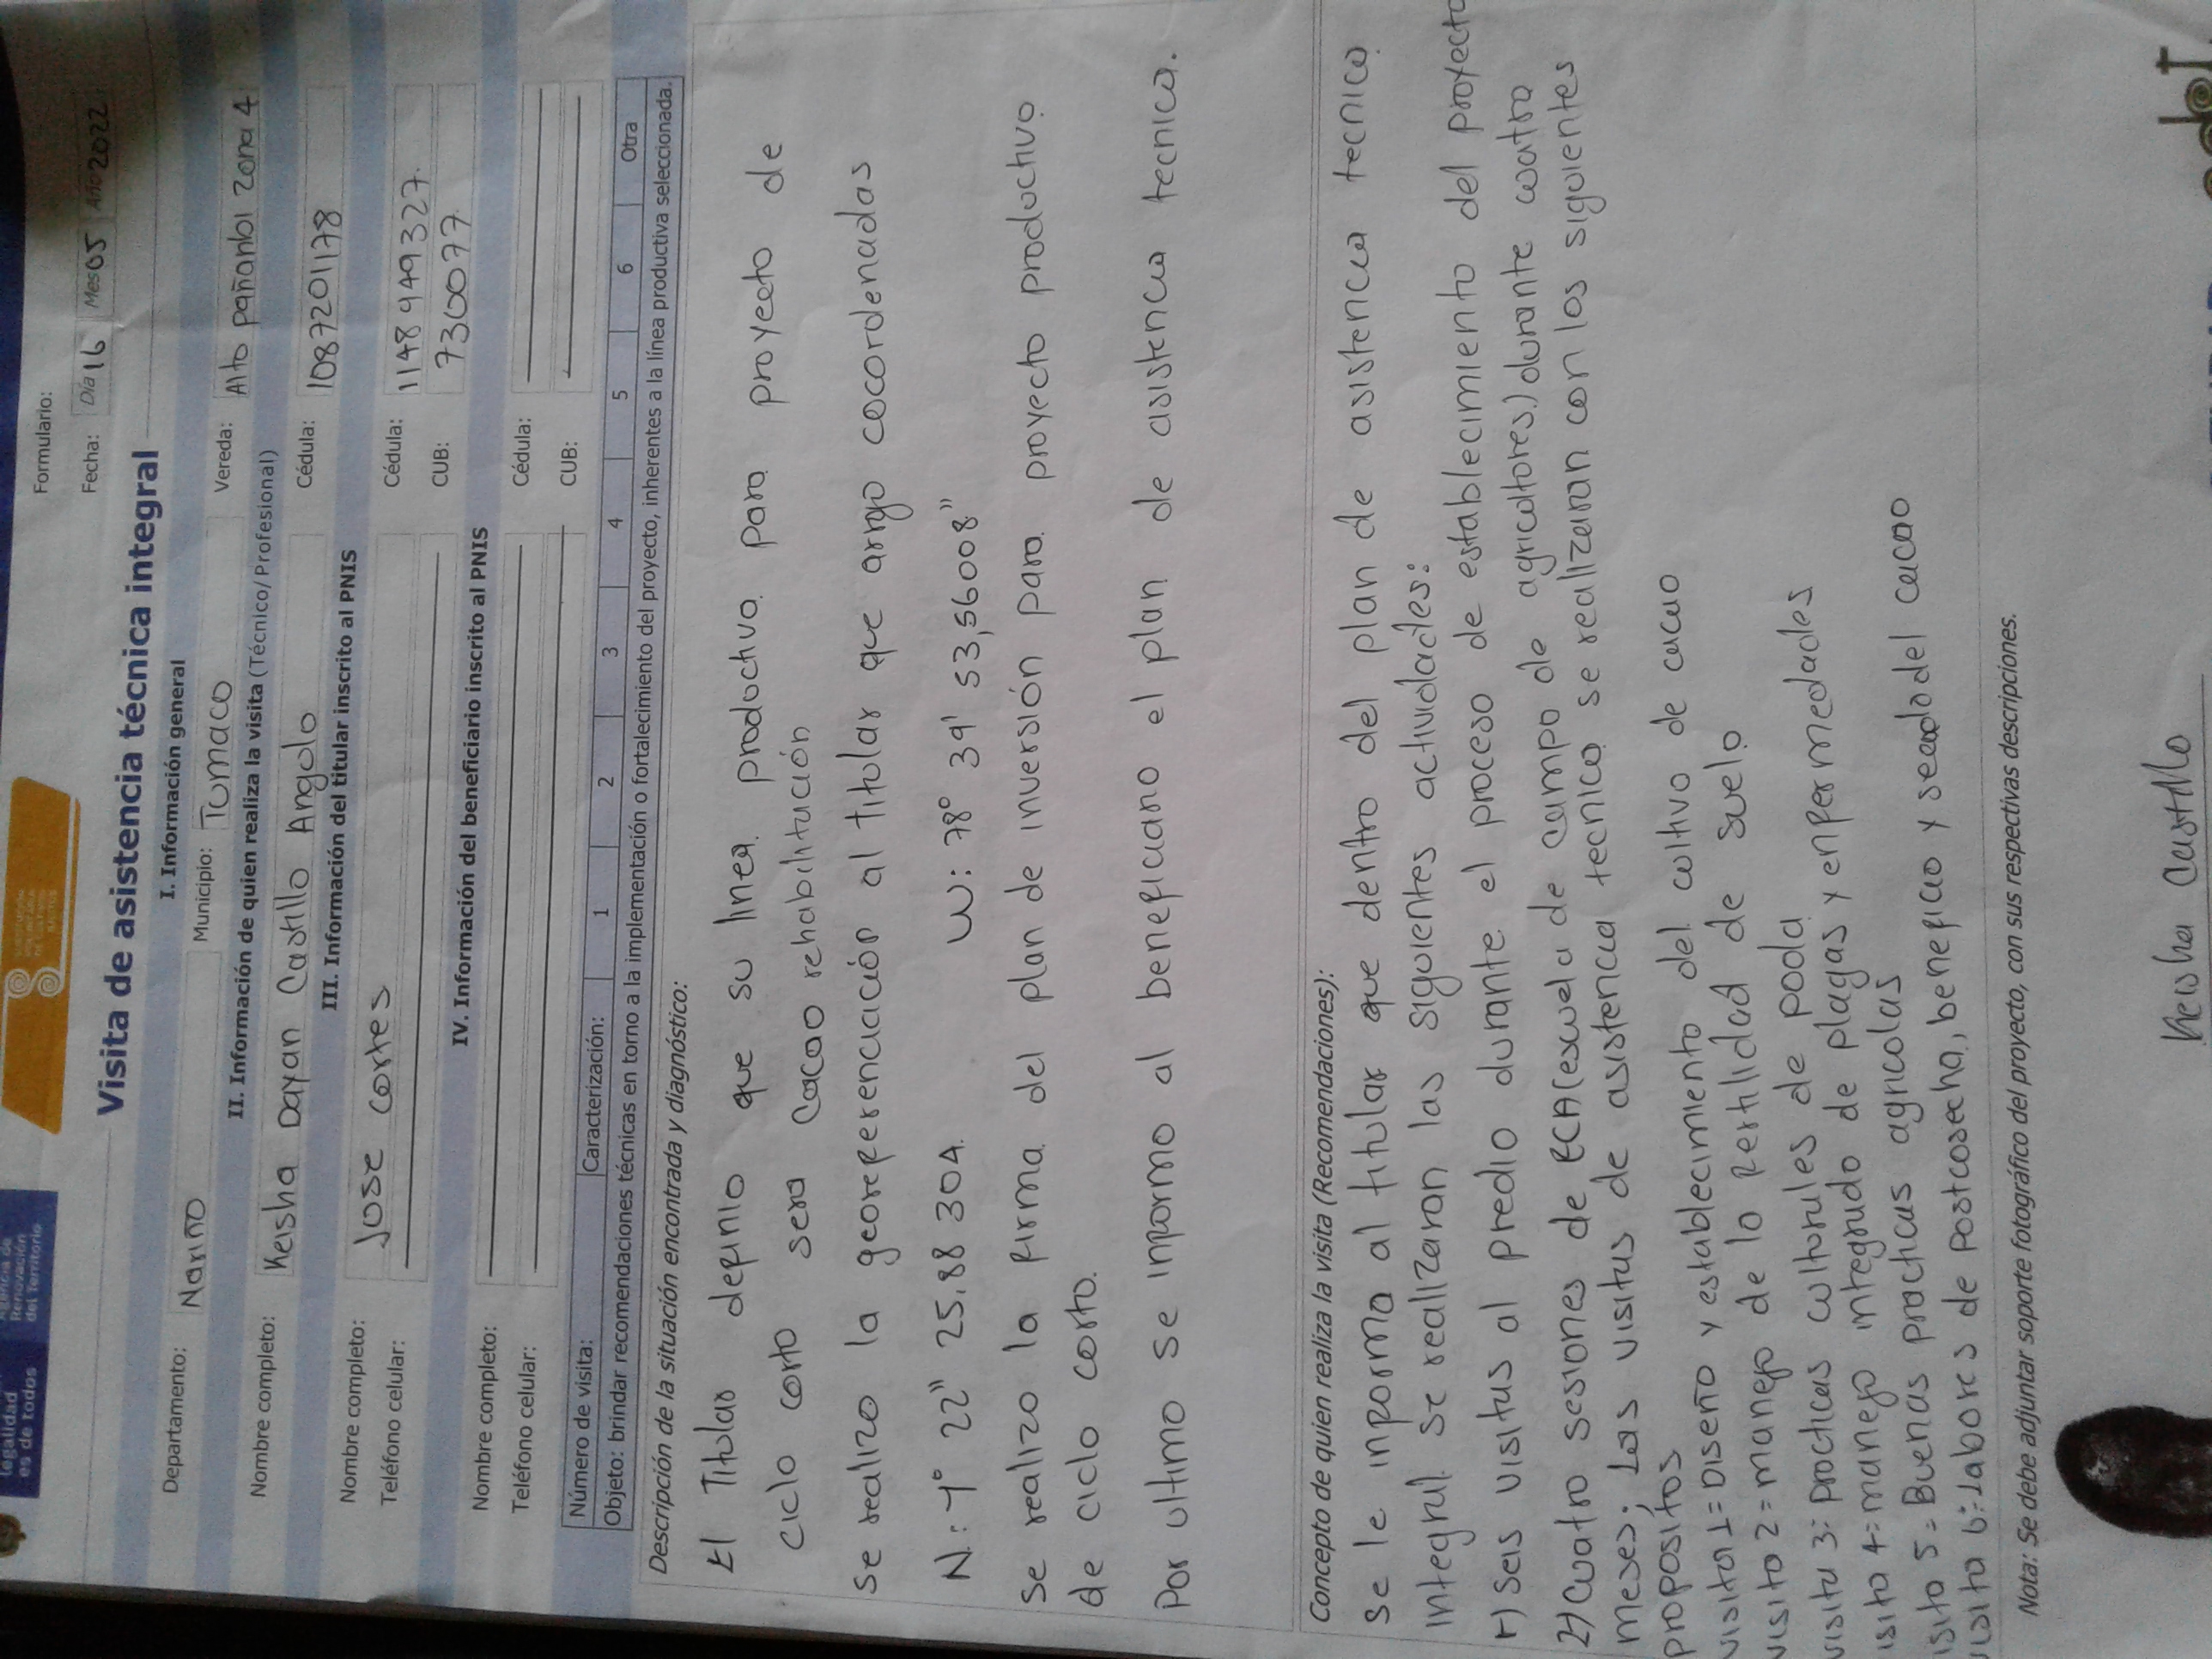 legalidad
es de todos
Agencia de
Renovación
del Territorio
Formulario:
Fecha: Día 16 Mes 05 Año 2022
Visita de asistencia técnica integral
I. Información general
Departamento: Nariño Municipio: Tumaco Vereda: Alto pañambi zona 4
II. Información de quien realiza la visita (Técnico/Profesional)
Nombre completo: Keisha Dayan Castillo Angulo Cédula: 1087201178
III. Información del titular inscrito al PNIS
Nombre completo: Jose cortes Cédula: 1148949327.
Teléfono celular: CUB: 730077
IV. Información del beneficiario inscrito al PNIS
Nombre completo: Cédula:
Teléfono celular: CUB:
Número de visita: Caracterización: 1 2 3 4 5 6 Otra
Objeto: brindar recomendaciones técnicas en torno a la implementación o fortalecimiento del proyecto, inherentes a la línea productiva seleccionada.
Descripción de la situación encontrada y diagnóstico:
El Titular definio que su linea productiva para proyecto de
ciclo corto sera cacao rehabilitación
se realizo la georeferenciación al titolar que arrojo cocordenadas
N.: 1° 22" 25,88304 W: 78° 39' 53,56008"
se realizo la firma del plan de inversión para proyecto productivo
de ciclo corto.
Por ultimo se informo al beneficiario el plan de asistencia tecnica.
Concepto de quien realiza la visita (Recomendaciones):
se le informo al titular que dentro del plan de asistencia tecnica
integral se realizaran las siguientes actividades:
1) seis visitas al predio durante el proceso de establecimiento del proyecto
2) Cuatro sesiones de ECA (escuela de campo de agricultores) durante cuatro
meses; Las visitas de asistencia tecnica se realizaran con los siguientes
propositos
visita 1= Diseño y establecimiento del cultivo de cacao
visita 2= manejo de la fertilidad de suelo
visita 3: practicas culturales de poda
isita 4= manejo integrado de plagas y enfermedades
isita 5= Buenas practicas agricolas
isita 6: Labores de postcosecha, beneficio y secado del cacao
Nota: Se debe adjuntar soporte fotográfico del proyecto, con sus respectivas descripciones.
Keisha Castillo